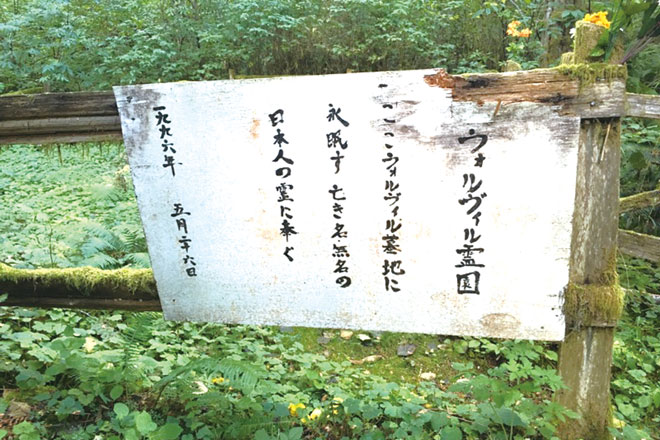 ウォルヴィル霊園
ここウォルヴィル墓地に
永眠す 亡き名・無名の
日本人の霊に奉ぐ
一九九六年 五月二十六日